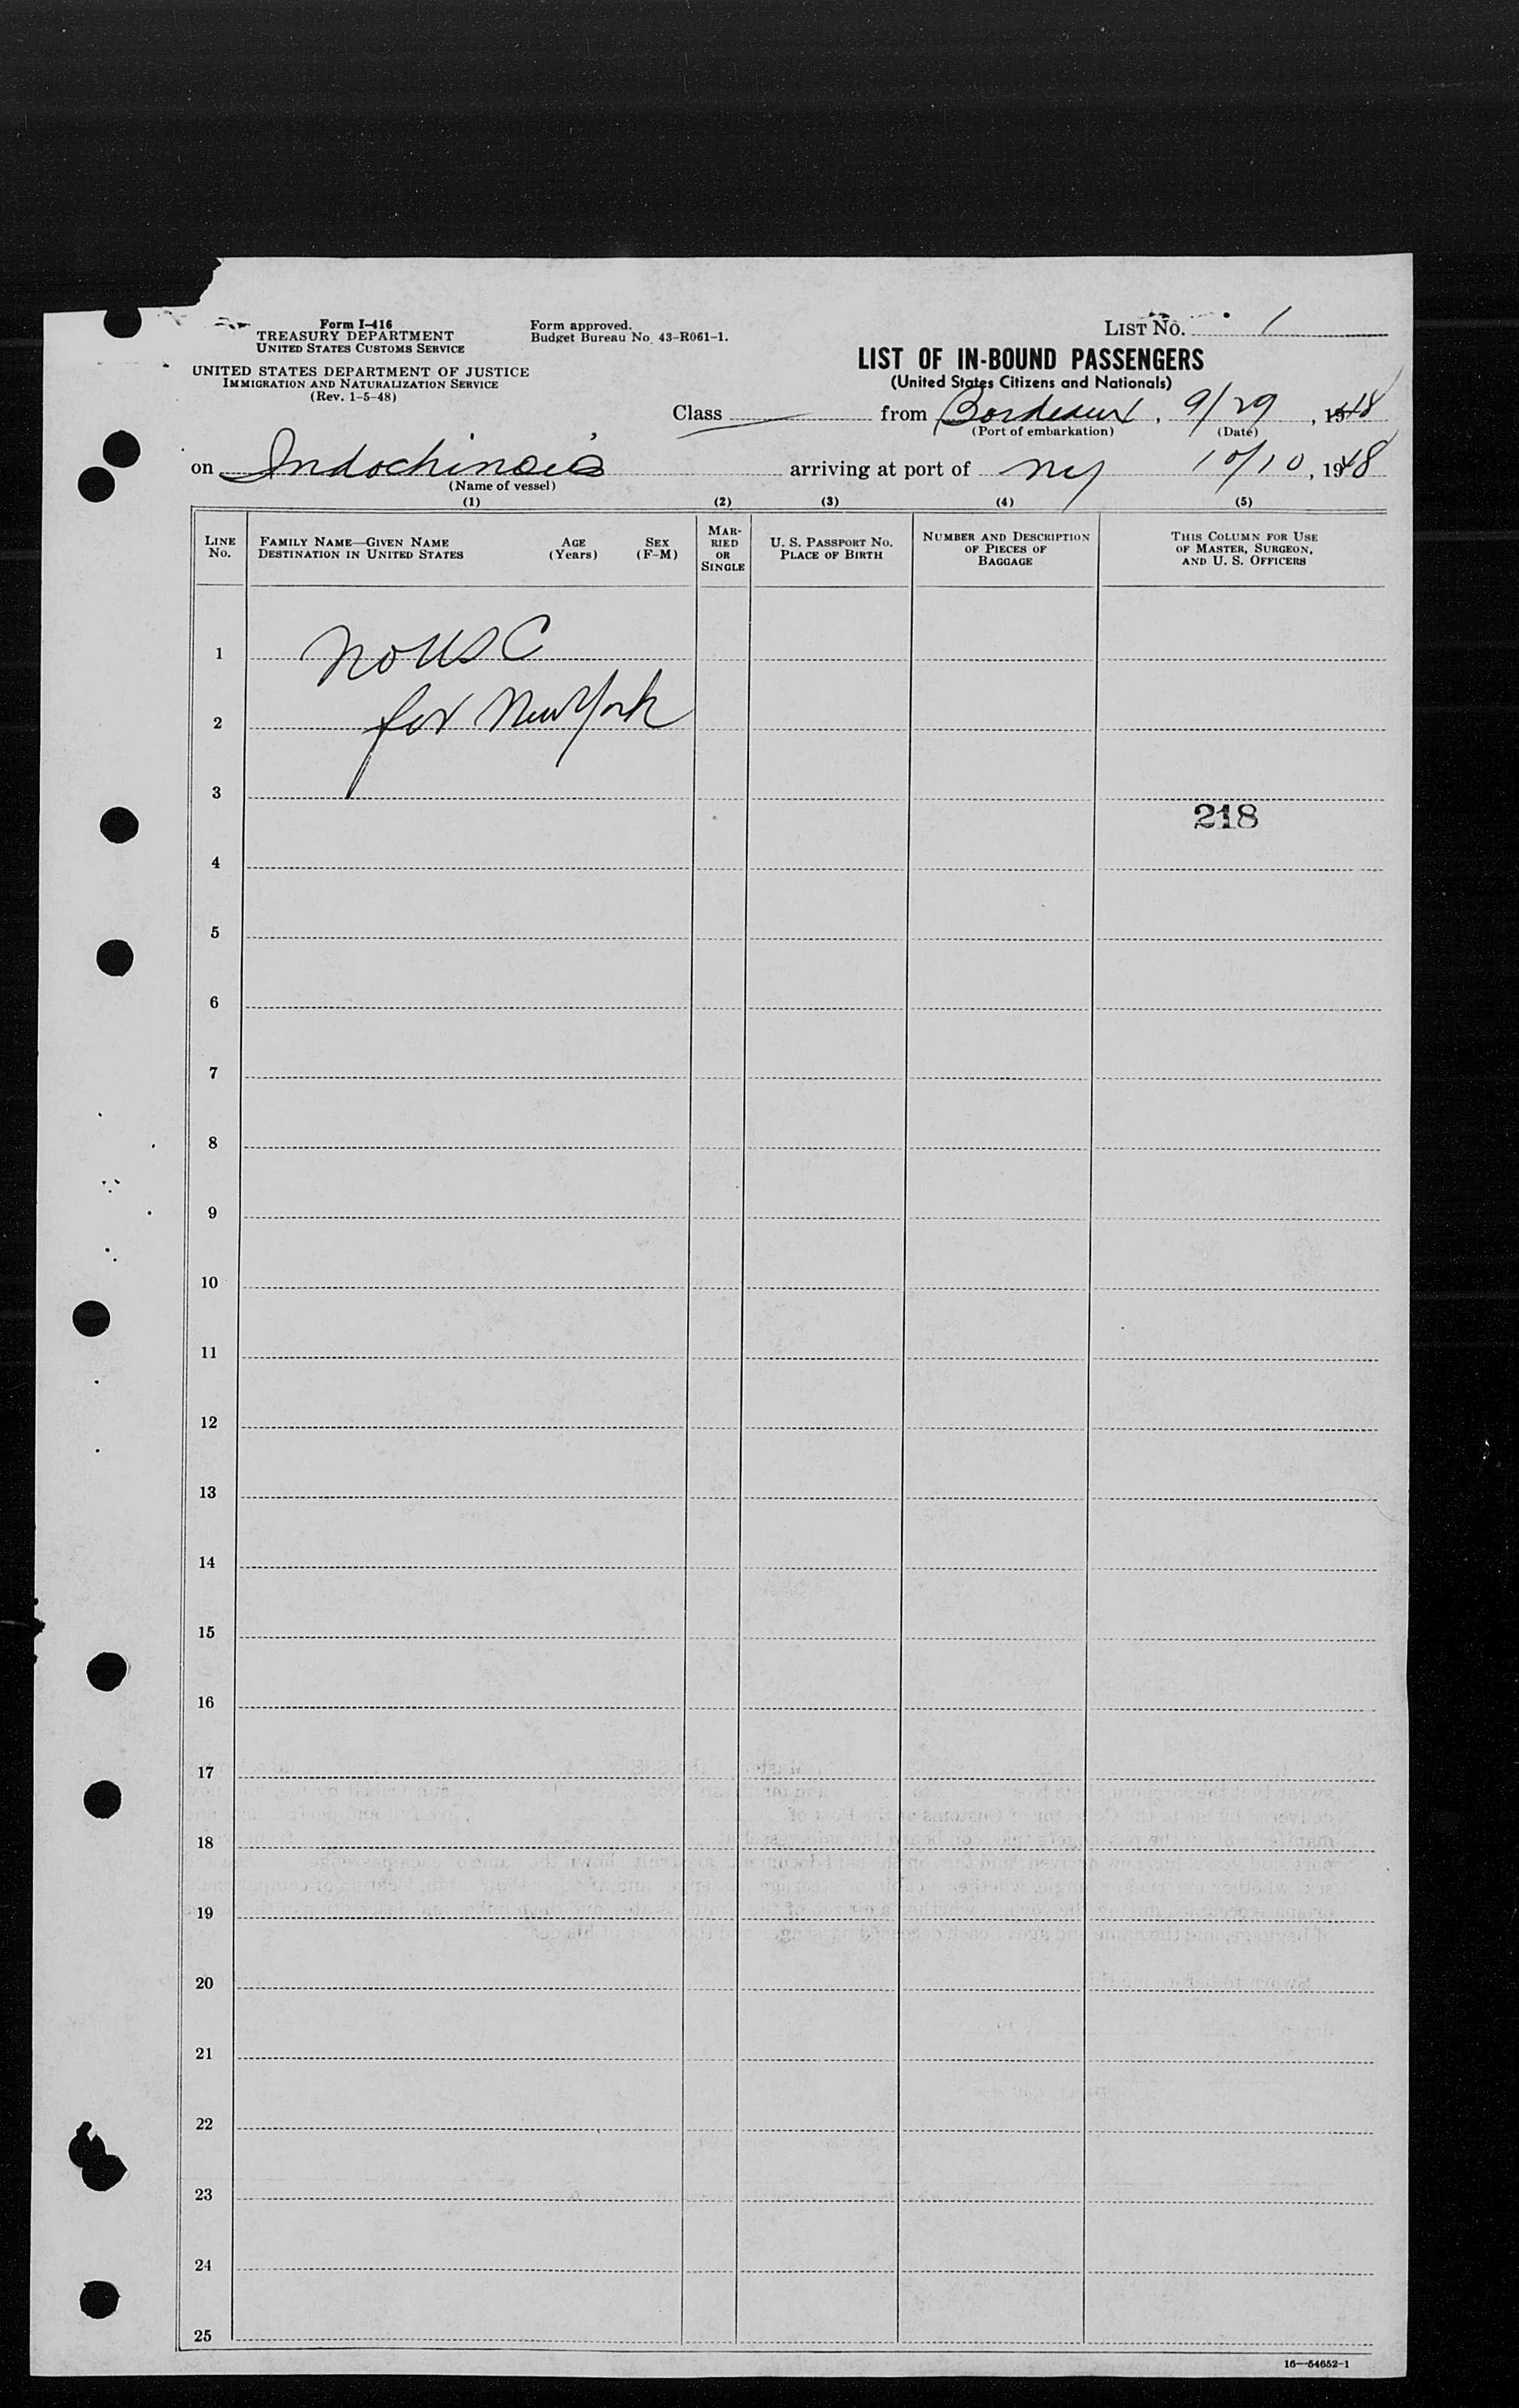 Form I-416
TREASURY DEPARTMENT
UNITED STATES CUSTOMS SERVICE
UNITED STATES DEPARTMENT OF JUSTICE
IMMIGRATION AND NATURALIZATION SERVICE
(Rev. 1-5-48)
Form approved.
Budget Bureau No. 43-R061-1.
LIST NO. 1
LIST OF IN-BOUND PASSENGERS
(United States Citizens and Nationals)
Class from Bordeaux, 9/29, 1948
(Port of embarkation) (Date)
on Indochinois arriving at port of ny 10/10, 1948
(Name of vessel)
(1) (2) (3) (4) (5)
LINE No.
FAMILY NAME—GIVEN NAME
DESTINATION IN UNITED STATES
AGE (Years)
SEX (F-M)
MARRIED OR SINGLE
U. S. PASSPORT NO.
PLACE OF BIRTH
NUMBER AND DESCRIPTION OF PIECES OF BAGGAGE
THIS COLUMN FOR USE OF MASTER, SURGEON, AND U. S. OFFICERS
1 no USC
2 for New York
3
218
4
5
6
7
8
9
10
11
12
13
14
15
16
17
18
19
20
21
22
23
24
25
16—54652-1